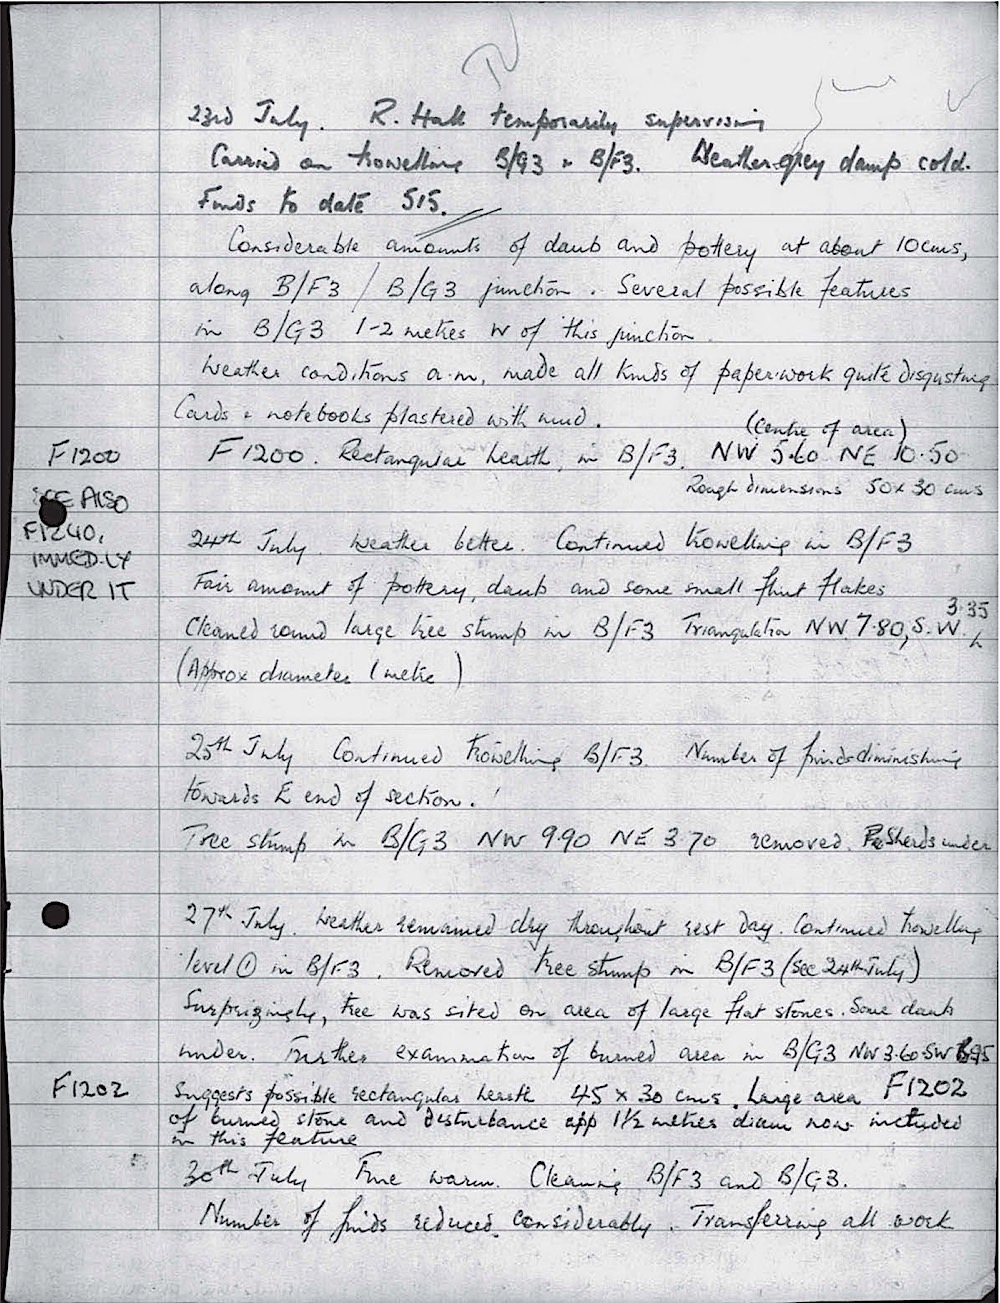 IV
23rd July. R. Hall temporarily supervising
Carried on trowelling B/G3 + B/F3. Weather grey damp cold.
Finds to date 515.
Considerable amounts of daub and pottery at about 10cms,
along B/F3 / B/G3 junction. Several possible features
in B/G3 1-2 metres W of this junction.
Weather conditions a.m. made all kinds of paperwork quite disgusting
Cards + notebooks plastered with mud.
(Centre of area)
F1200
F1200. Rectangular hearth, in B/F3. NW 5.60 NE 10.50
Rough dimensions 50 x 30 cms
SEE ALSO
F1240,
IMMED.LY
UNDER IT
24th July. Weather better. Continued trowelling in B/F3
Fair amount of pottery, daub and some small flint flakes
Cleaned round large tree stump in B/F3 Triangulation NW 7.80, S.W. 3.35
(Approx diameter 1 metre)
25th July Continued trowelling B/F3. Number of finds diminishing
towards E end of section.
Tree stump in B/G3 NW 9.90 NE 3.70 removed. Sherds under
27th July. Weather remained dry throughout rest day. Continued trowelling
level ① in B/F3. Removed tree stump in B/F3 (see 24th July)
Surprizingly, tree was sited on area of large flat stones. Some daub
under. Further examination of burned area in B/G3 NW 3.60 SW
F1202
Suggests possible rectangular hearth 45 x 30 cms. Large area F1202
of burned stone and disturbance app 1½ metres diam now included
in this feature
30th July Fine warm. Cleaning B/F3 and B/G3.
Number of finds reduced considerably. Transferring all work